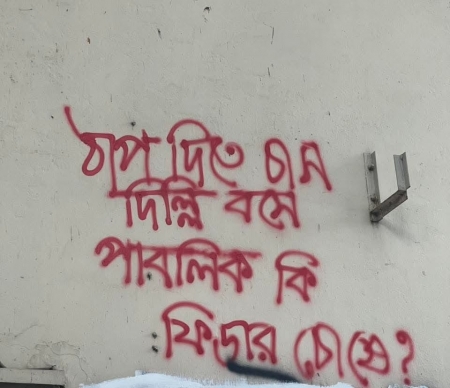 ঠাপ দিতে চান
দিল্লি বসে
পাবলিক কি
ফিডার চোষে?